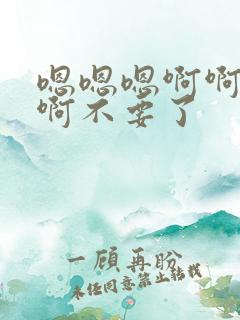 嗯嗯嗯啊啊
啊不要了
一顾再盼
未经同意禁止转载